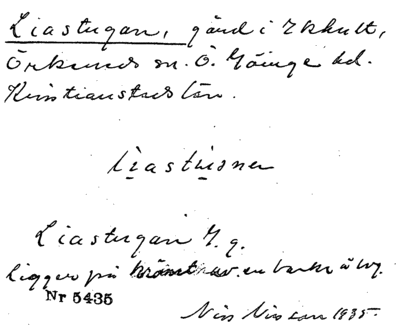 Liastugan, gård i Ekhult,
Örkeneds sn. Ö. Göinge hd.
Kristianstads län.
Liastugan
ligger på krönet av en backe
Nr 5435
Nils Nilsson 1935.